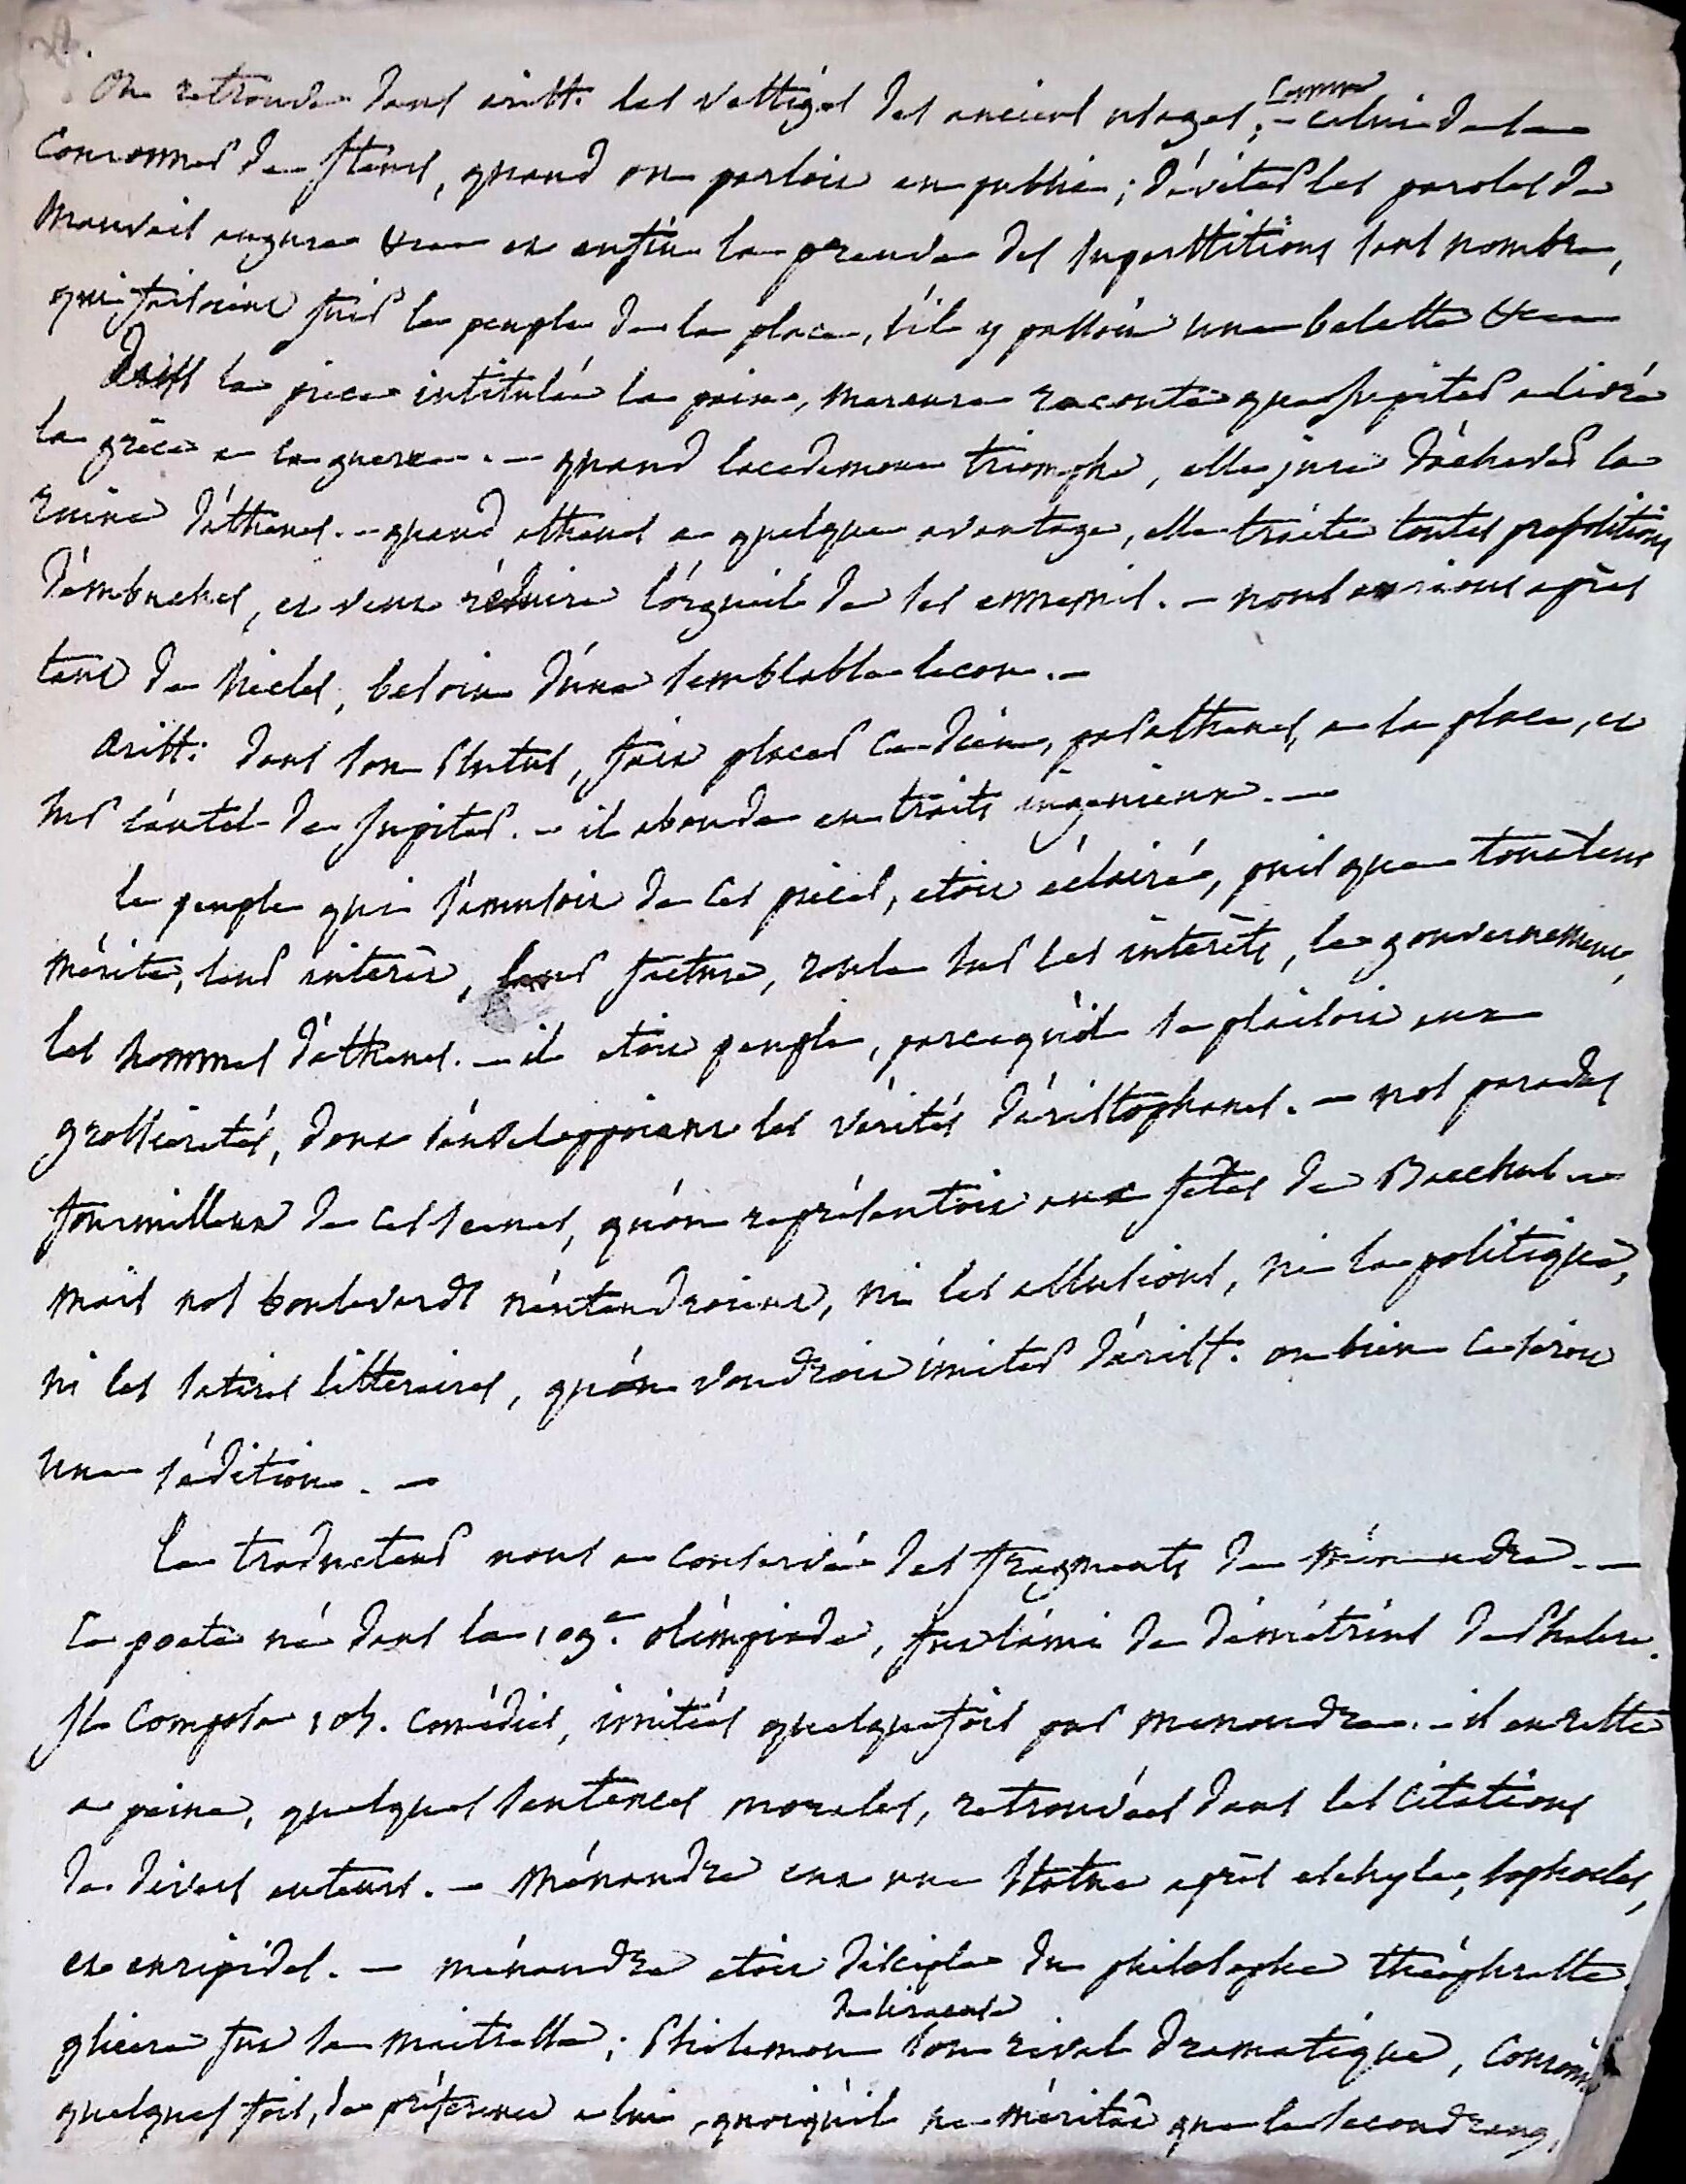 On retrouve dans arist. les vestiges des anciens usages, - comme celui de se
couronner de fleurs, quand on parloit en public ; d'éviter les paroles de
mauvais augure &c et enfin la preuve des superstitions sans nombre,
qui faisoient fuir le peuple de la place, s'il y passoit une belette &c
Dans la piece intitulée la paix, mercure raconte que Jupiter a livré
la grèce a la guerre. - quand lacedemone triomphe, elle jure d'achever la
ruine d'athenes. - quand athenes a quelque avantage, elle traite toutes propositions
d'embuches, et veut réduire l'orgueil de ses ennemis. - nous aurions après
tant de siecles, besoin d'une semblable lecon. -
arist: dans son Plutus, fait placer ce dieu, par athenes, a la place, et
sur l'autel de Jupiter. - il abonde en traits ingenieux. -
le peuple qui s'amusoit de ces pieces, etoit éclairé, puis que tout leur
mérite, leur interêt, leur facture, roule sur les interêts, le gouvernement,
les hommes d'athenes. - il etoit peuple, parcequ'il se plaisoit aux
grossieretés, dont s'enveloppoient les vérités d'aristophanes. - nos parades
fourmillent de ces scenes, qu'on représentoit aux fêtes de Bacchus
mais nos boulevards n'entendroient, ni les allusions, ni la politique,
ni les satires litteraires, qu'on voudroit imiter d'arist. ou bien ce seroit
une sédition. -
Le traducteur nous a conservé des fragments de Ménandre. -
Ce poete né dans la 109.e olimpiade, fut l'ami de démétrius de Phalere.
Il composa 105. comédies, imitées quelquefois par menandre. - il en reste
a peine, quelques sentences morales, retrouvées dans les citations
de divers auteurs. - Ménandre eut une statue après eschyle, sophocles,
et euripides. - ménandre etoit disciple du philosophe théophraste
glicere fut sa maitresse ; Philemon de siracuse son rival dramatique,
quelques fois, de préference a lui, quoiqu'il ne méritât que le second rang,